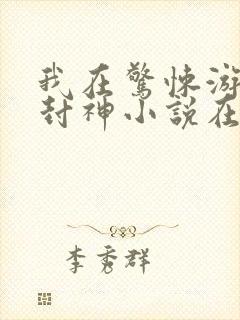 我在驚悚游
封神小說在
李秀群